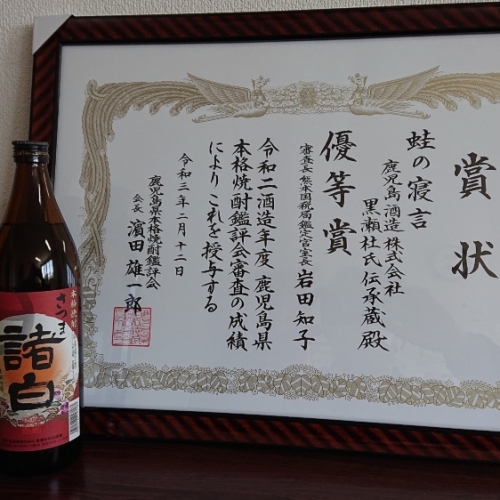 賞状
蛙の寝言
鹿児島酒造株式会社
黒瀬杜氏伝承蔵殿
優等賞
審査長熊本国税局鑑定官室長 岩田知子
令和二酒造年度鹿児島県
本格焼酎鑑評会審査の成績
によりこれを授与する
令和三年二月十二日
鹿児島県本格焼酎鑑評会
会長 濵田雄一郎
本格焼酎
さつま
諸白